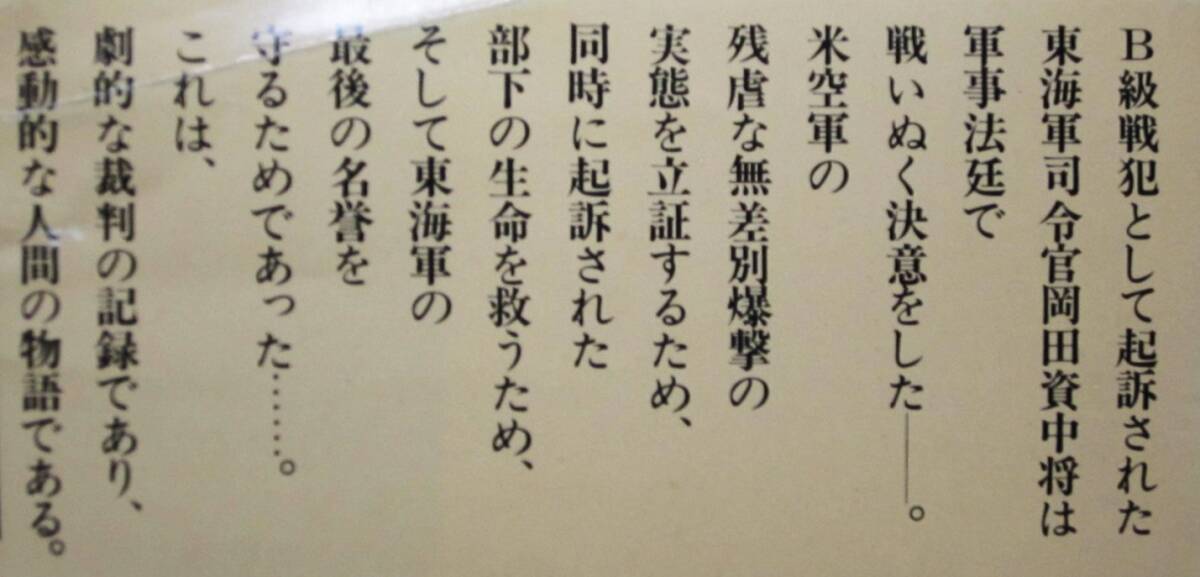 B級戦犯として起訴された
東海軍司令官岡田資中将は
軍事法廷で
戦いぬく決意をした――。
米空軍の
残虐な無差別爆撃の
実態を立証するため、
同時に起訴された
部下の生命を救うため、
そして東海軍の
最後の名誉を
守るためであった……。
これは、
劇的な裁判の記録であり、
感動的な人間の物語である。